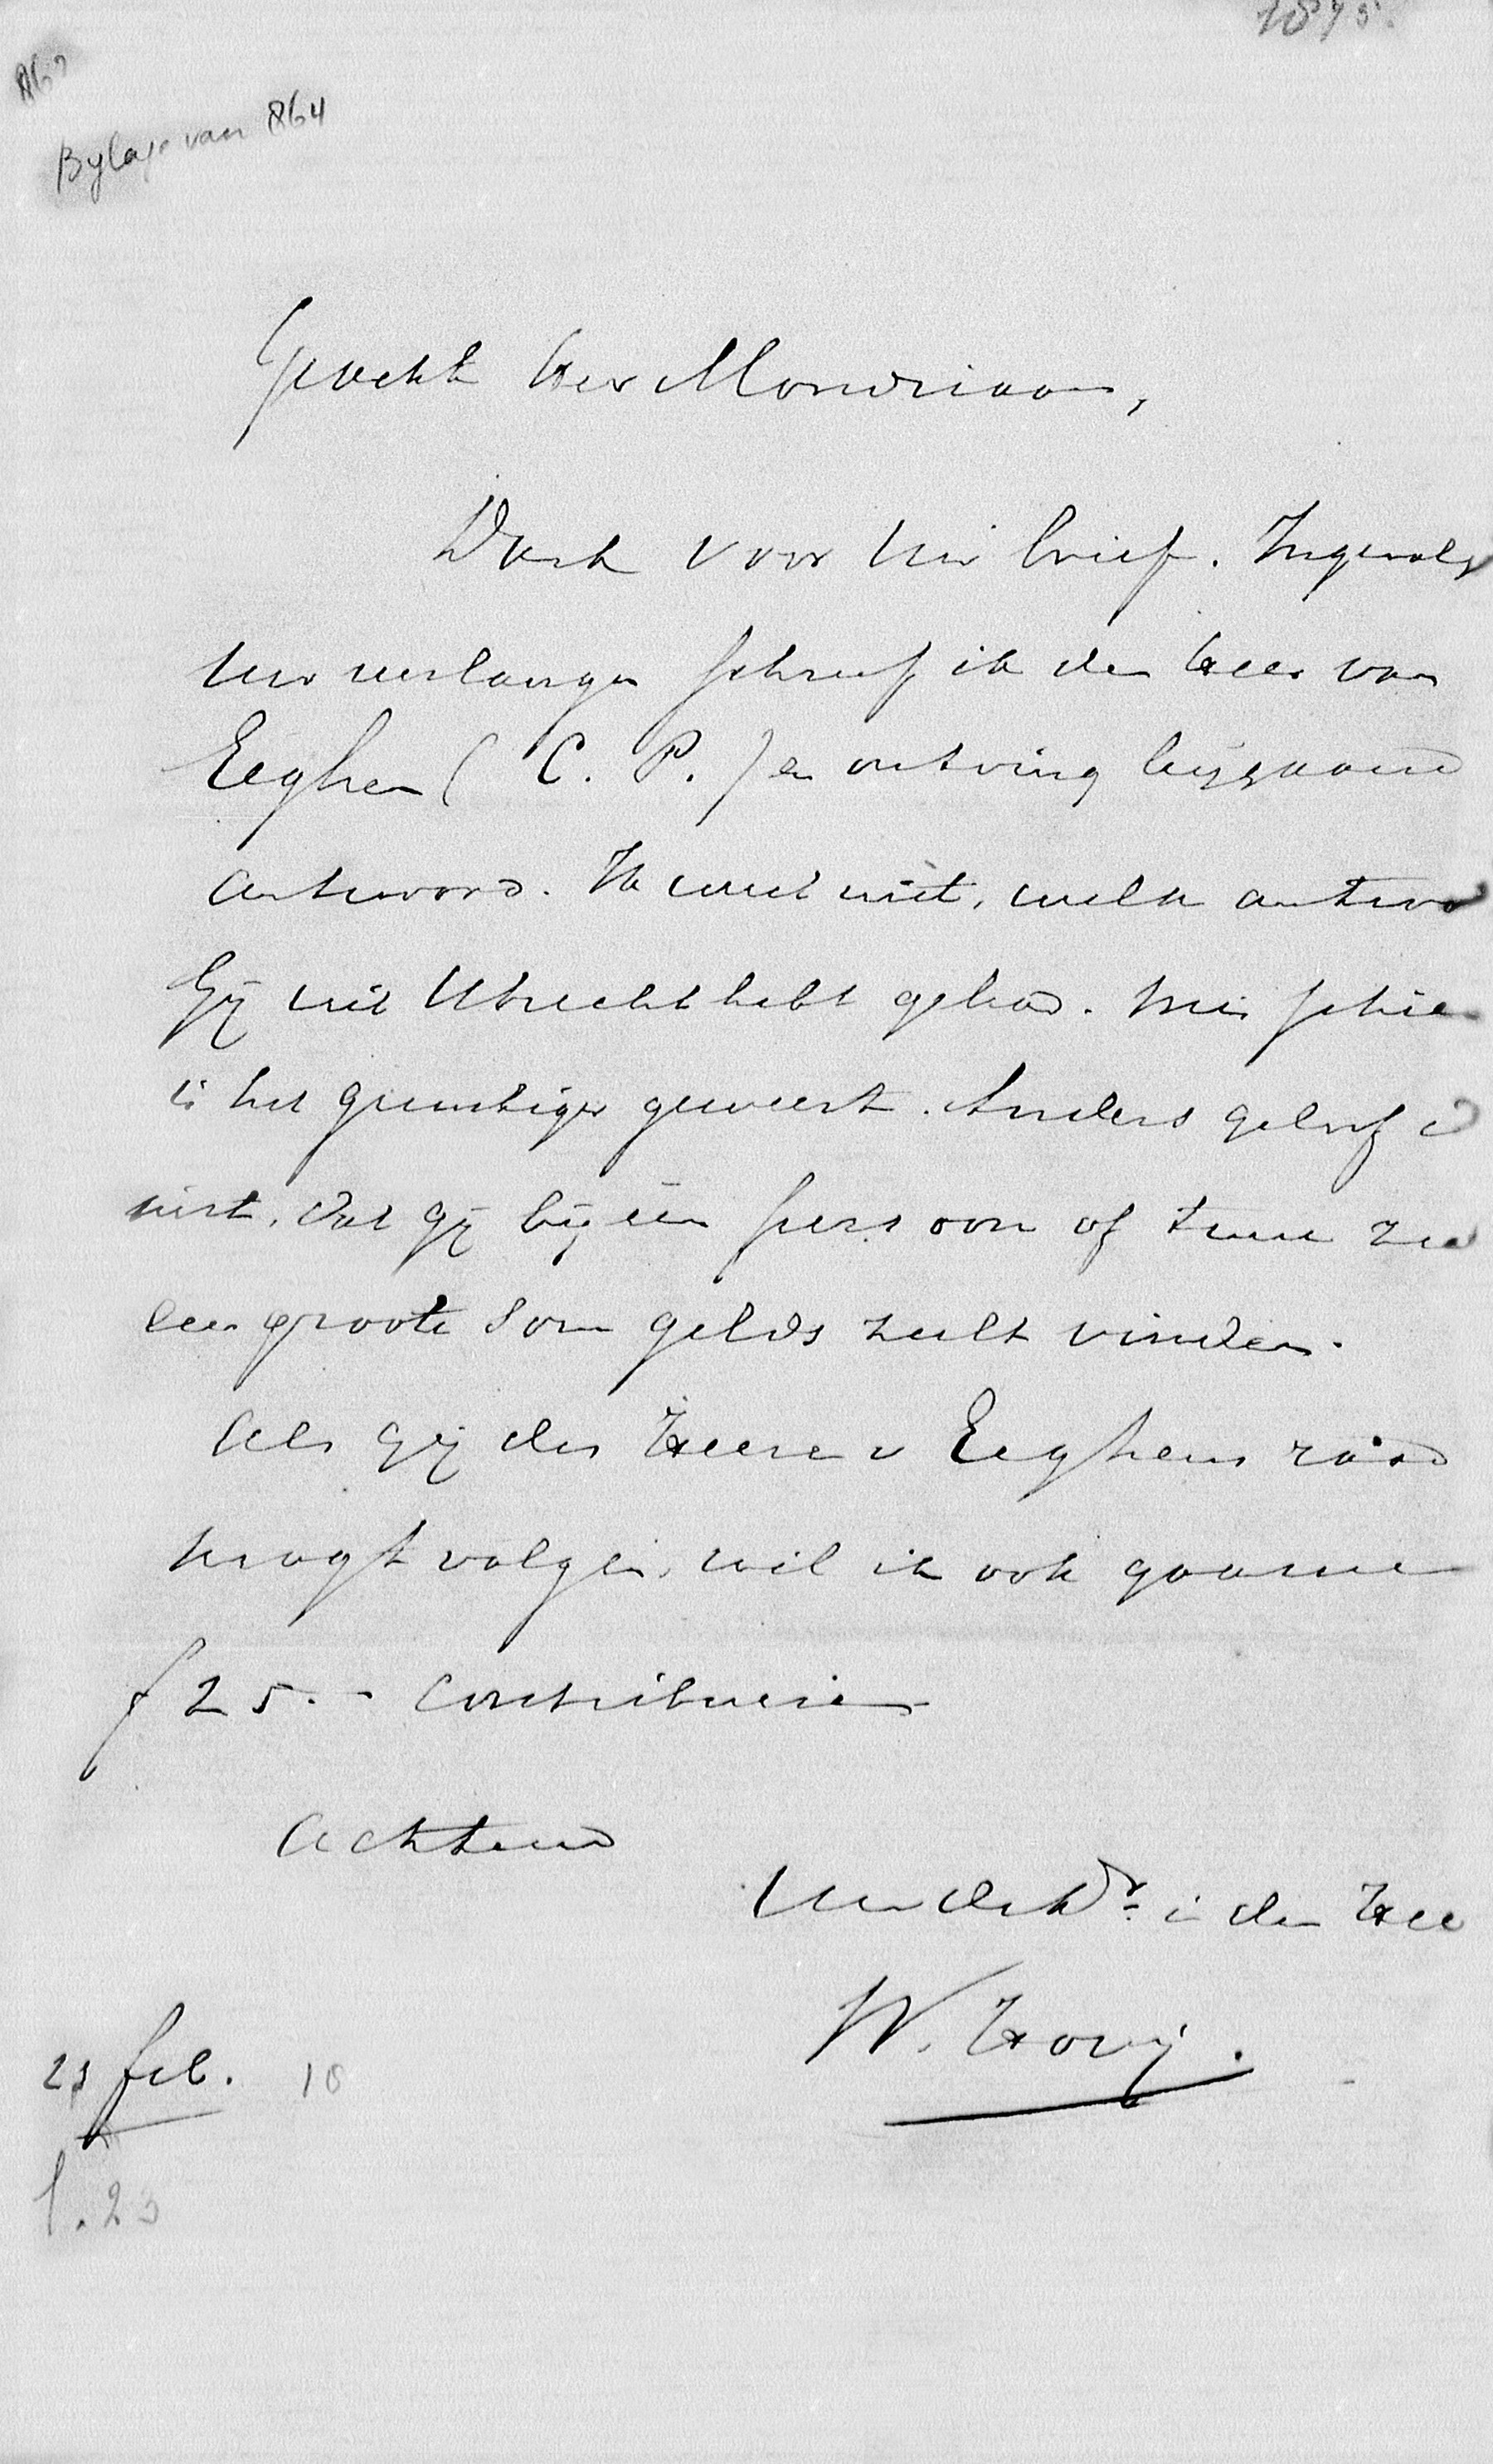 1875.
Bylage van 864
Geacht Heer Mondriaan,
Dank voor Uw brief. Ingevolg
Uw verlangen schreef ik den Heer van
Eeghen (C. P.) en ontving bijgaand
antwoord. Ik weet niet, welk antwoo
Gij uit Utrecht hebt gehad. Misschien
is het gunstiger geweest. Anders geloof i
niet, dat gij bij één persoon of twee zul
een groote som gelds zult vinden.
Als gij des Heeren v Eeghens raad
mogt volgen, wil ik ook gaarne
f 25.- contribueeren
Achtend
Uw dwDr. in den Hee
W. Hovij.
feb. 18